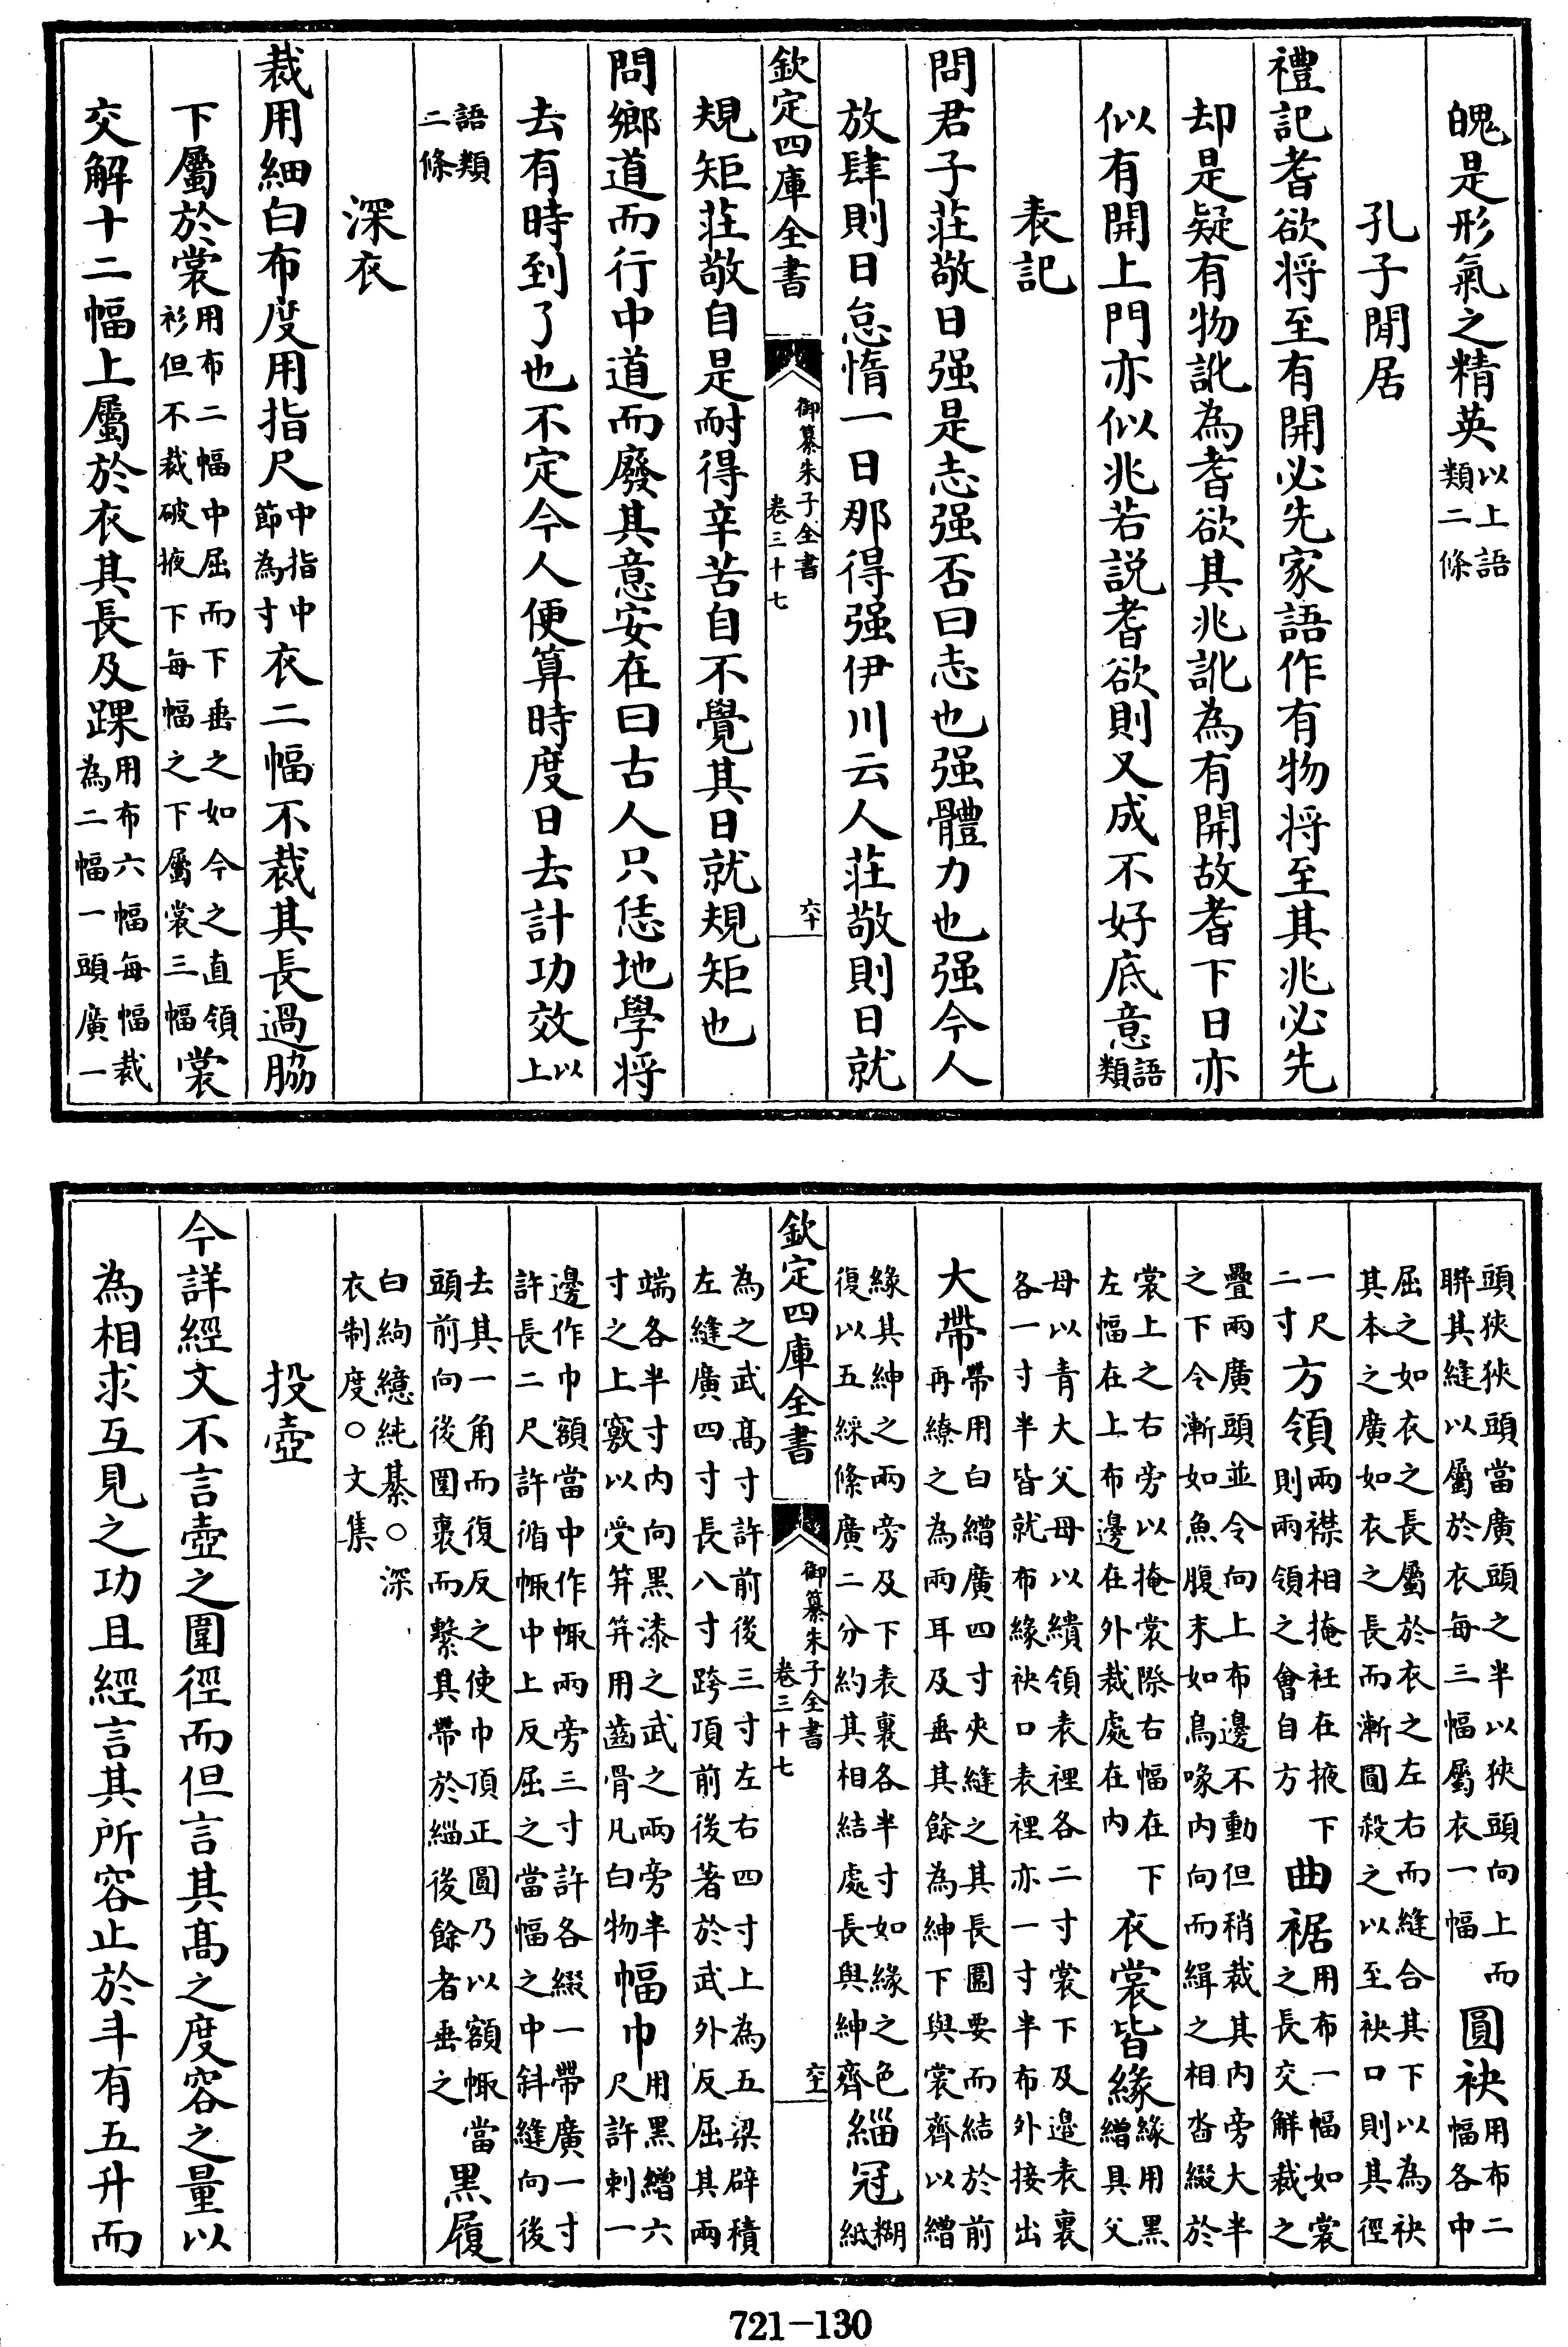 魄是形氣之精英以上語類二條
孔子閒居
禮記耆欲将至有開必先家語作有物将至其兆必先
却是疑有物訛為耆欲其兆訛為有開故耆下日亦
似有開上門亦似兆若説耆欲則又成不好底意語類
表記
問君子莊敬日强是志强否曰志也强體力也强今人
放肆則日怠惰一日那得强伊川云人莊敬則日就
欽定四庫全書 御纂朱子全書 卷三十七 六十
規矩莊敬自是耐得辛苦自不覺其日就規矩也
問鄉道而行中道而廢其意安在曰古人只恁地學将
去有時到了也不定今人便算時度日去計功效以上
語類二條
深衣
裁用細白布度用指尺中指中節為寸衣二幅不裁其長過脇
下屬於裳用布二幅中屈而下垂之如今之直領衫但不裁破掖下每幅之下屬裳三幅裳
交解十二幅上屬於衣其長及踝用布六幅每幅裁為二幅一頭廣一
頭狹狹頭當廣頭之半以狹頭向上而聨其縫以屬於衣每三幅屬衣一幅圓袂用布二幅各中
屈之如衣之長屬於衣之左右而縫合其下以為袂其本之廣如衣之長而漸圓殺之以至袂口則其徑
一尺二寸方領兩襟相掩衽在掖下則兩領之會自方曲裾用布一幅如裳之長交解裁之
疊兩廣頭並令向上布邊不動但稍裁其内旁大半之下令漸如魚腹末如鳥喙内向而緝之相沓綴於
裳上之右旁以掩裳際右幅在下左幅在上布邊在外裁處在内衣裳皆緣緣用黑繒具父
母以青大父母以繢領表裡各二寸裳下及邉表裏各一寸半皆就布緣袂口表裡亦一寸半布外接出
大帶帶用白繒廣四寸夾縫之其長圍要而結於前再繚之為兩耳及垂其餘為紳下與裳齊以繒
緣其紳之兩旁及下表裏各半寸如緣之色復以五綵條廣二分約其相結處長與紳齊緇冠糊紙
欽定四庫全書 御纂朱子全書 卷三十七 六十一
為之武高寸許前後三寸左右四寸上為五梁辟積左縫廣四寸長八寸跨頂前後著於武外反屈其兩
端各半寸内向黑漆之武之兩旁半寸之上竅以受筓筓用齒骨凡白物幅巾用黑繒六尺許刺一
邊作巾額當中作㡇兩旁三寸許各綴一帶廣一寸許長二尺許循㡇中上反屈之當幅之中斜縫向後
去其一角而復反之使巾頂正圓乃以額㡇當頭前向後圍裹而繫其帶於緇後餘者垂之黑履
白絇繶純綦○深衣制度○文集
投壺
今詳經文不言壺之圍徑而但言其高之度容之量以
為相求互見之功且經言其所容止於斗有五升而
721-130